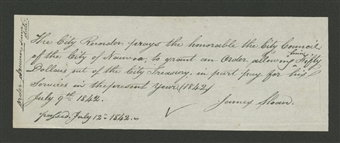 The City Recorder prays the honorable the City Council
of the City of Nauvoo, to grant an Order, allowing him Fifty
Dollars out of the City Treasury, in part pay for his
services in the present year (1842)
July 9th 1842.
James Sloan.
passed July 12th 1842.